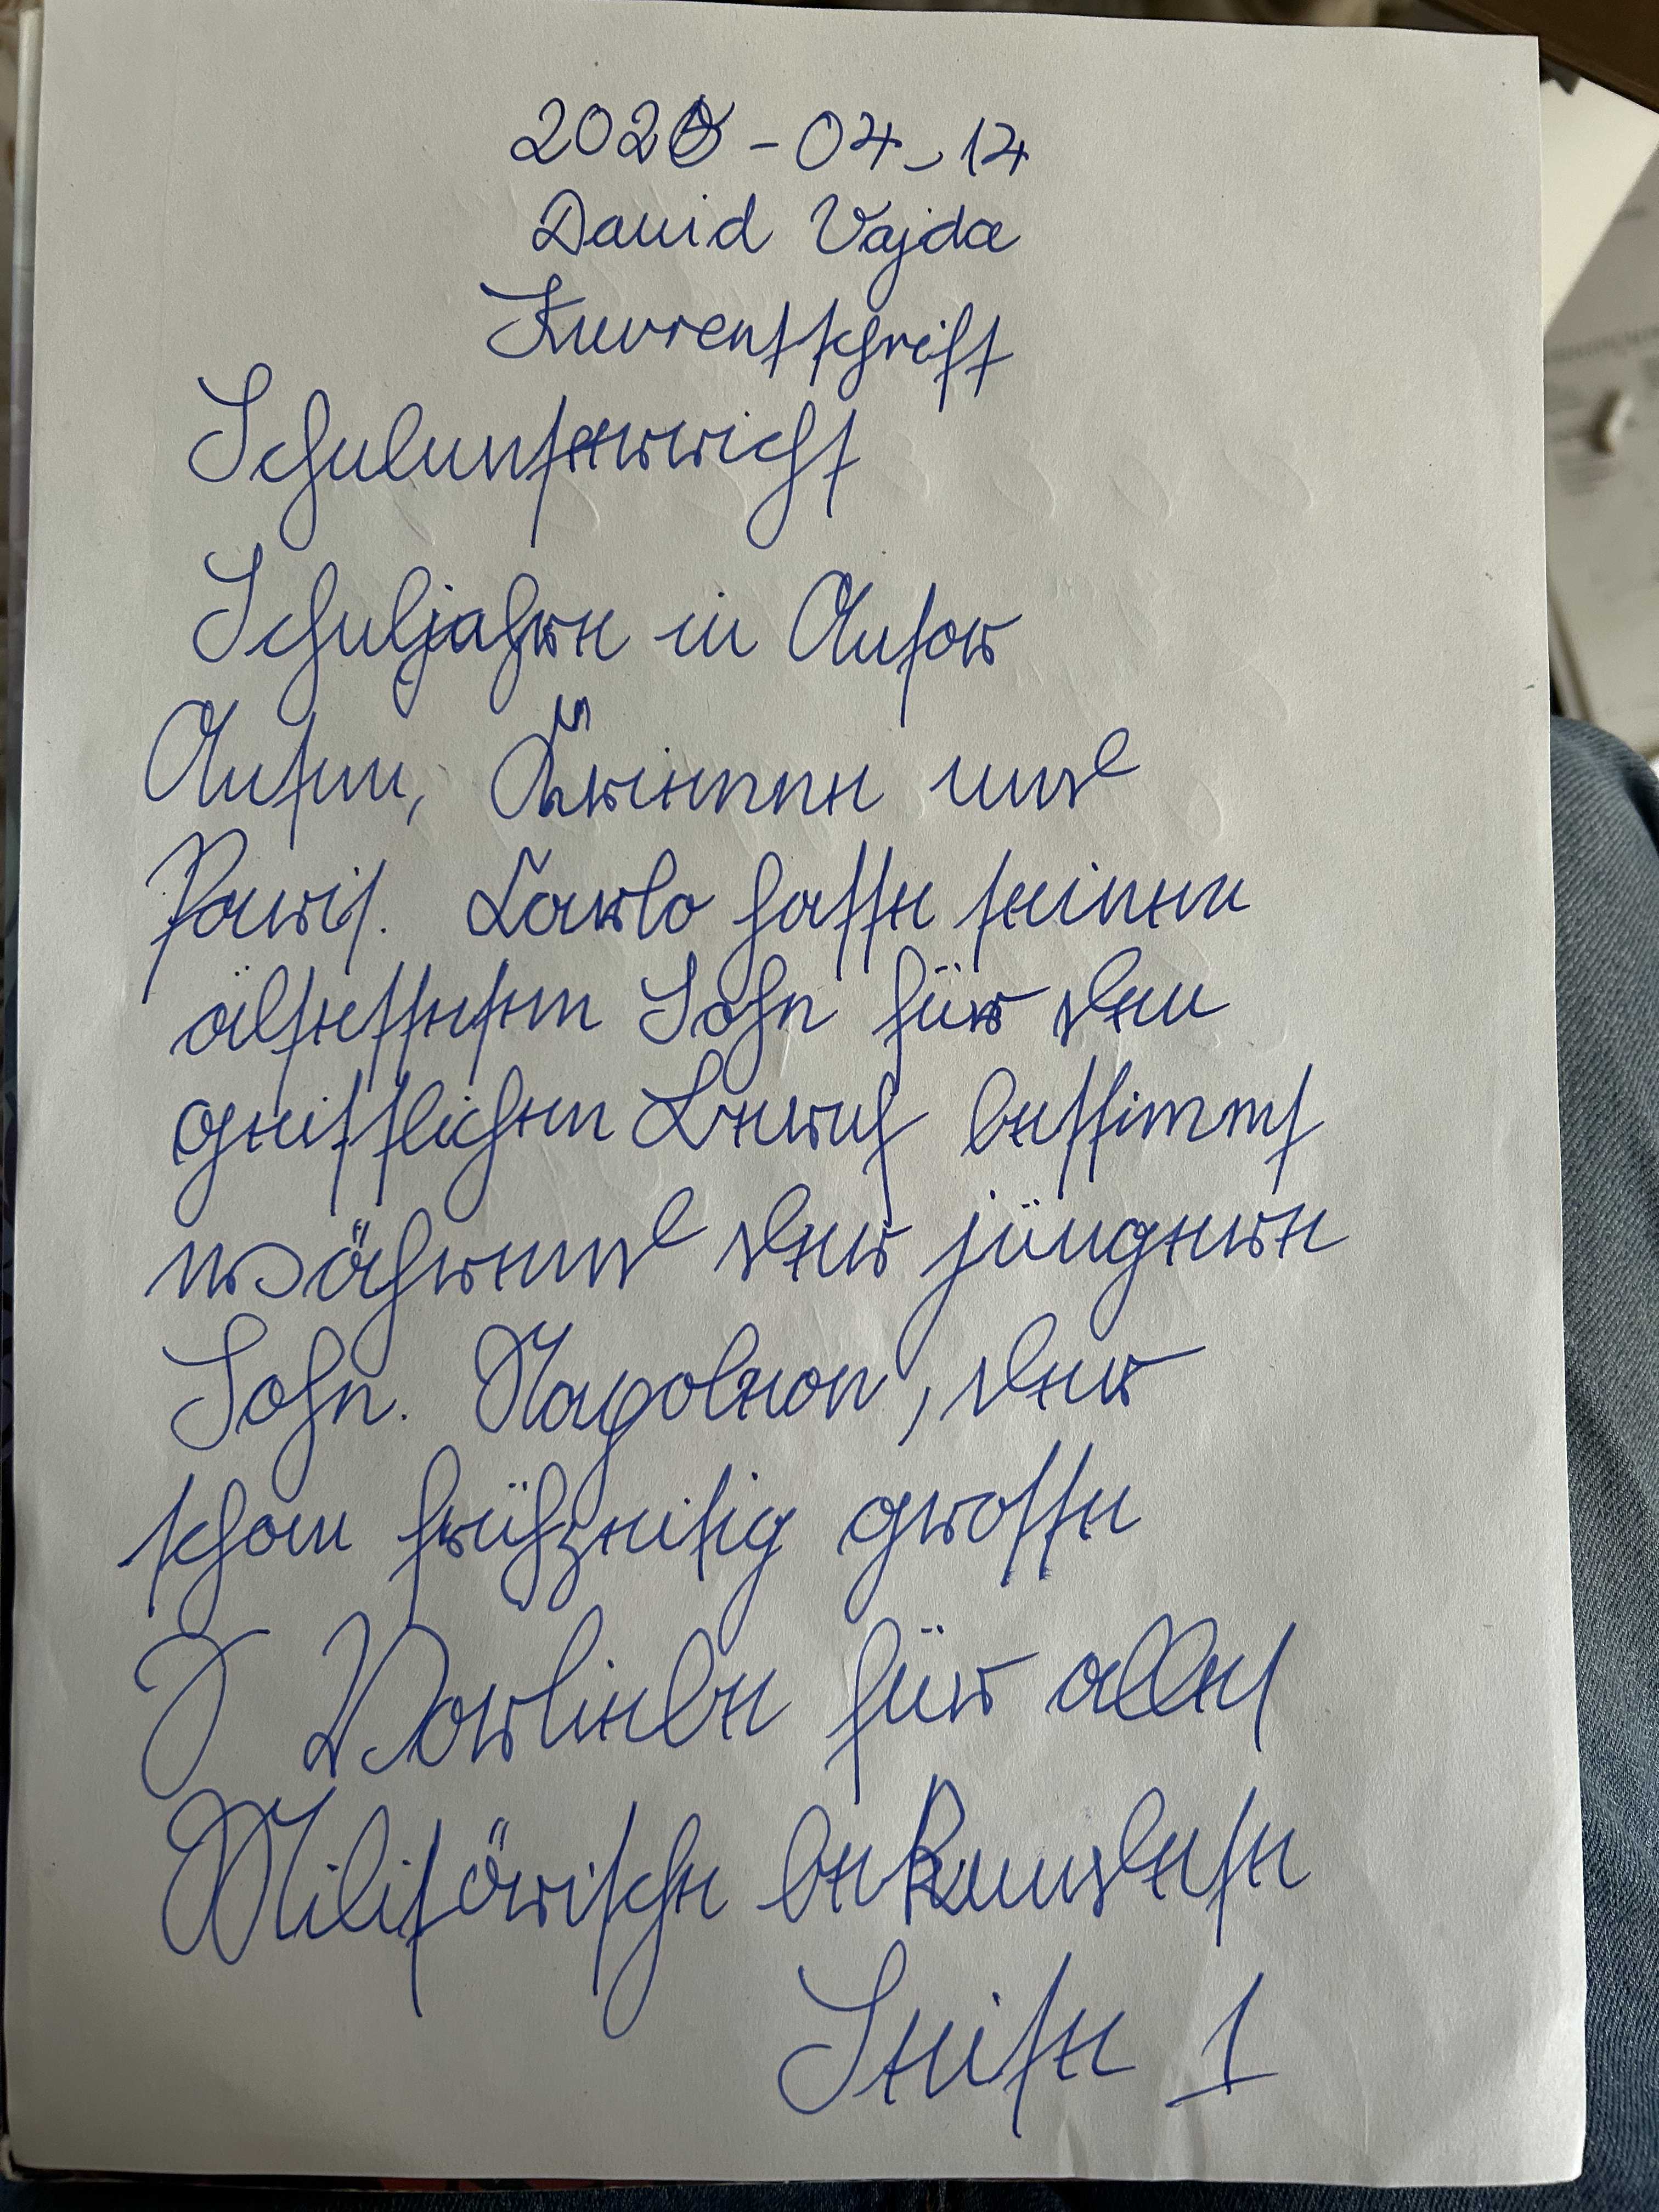 2026-04-14
David Vajda
Kurrentschrift
Schulunterricht
Schuljahre in Autor
Autun, Brienne und
Paris. Carlo hatte seinen
ältesteten Sohn für den
geistlichen Beruf bestimmt
während der jüngere
Sohn. Napoleon, der
schon frühzeitig grosse
Vorliebe für alles
Militärische bekundete
Seite 1